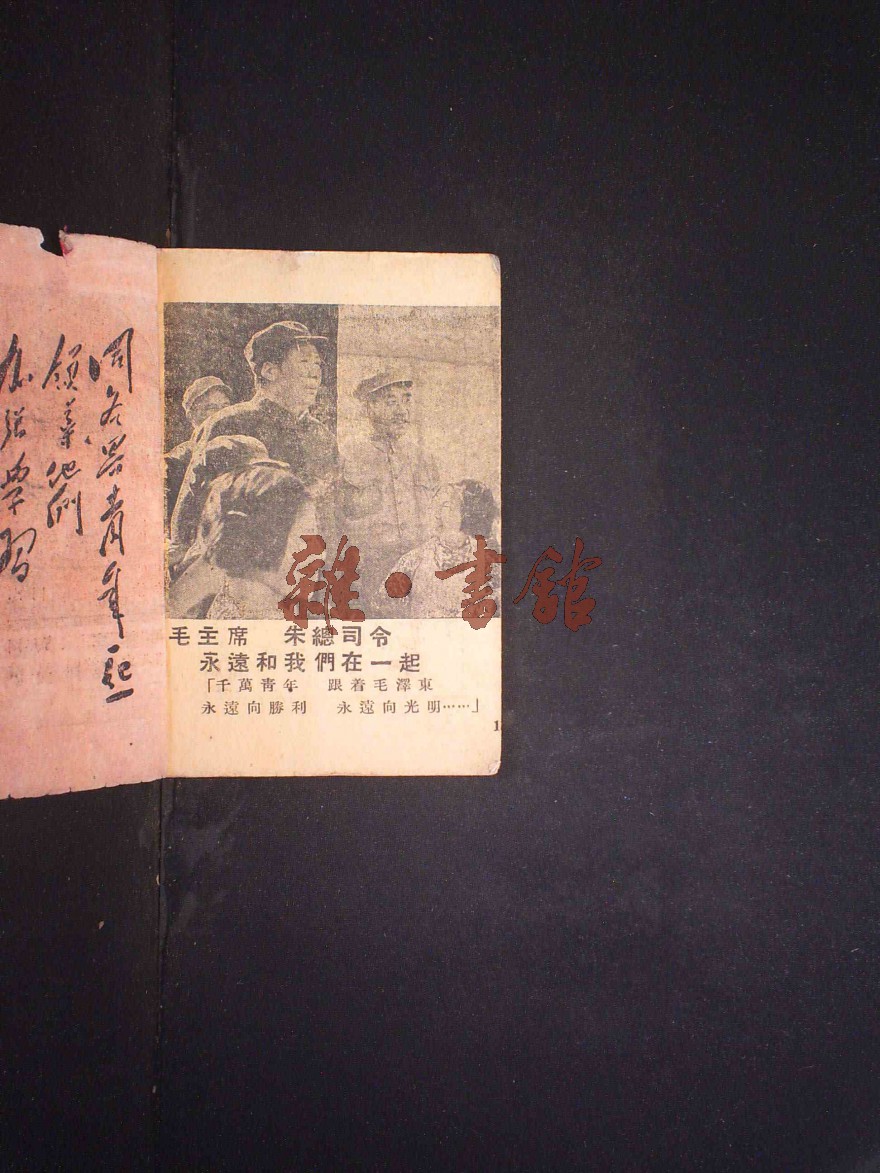 同各界青年一起
領導他們
加强學習
毛主席　朱總司令
永遠和我們在一起
「千萬靑年　跟着毛澤東
永遠向勝利　永遠向光明……」
雜·書館